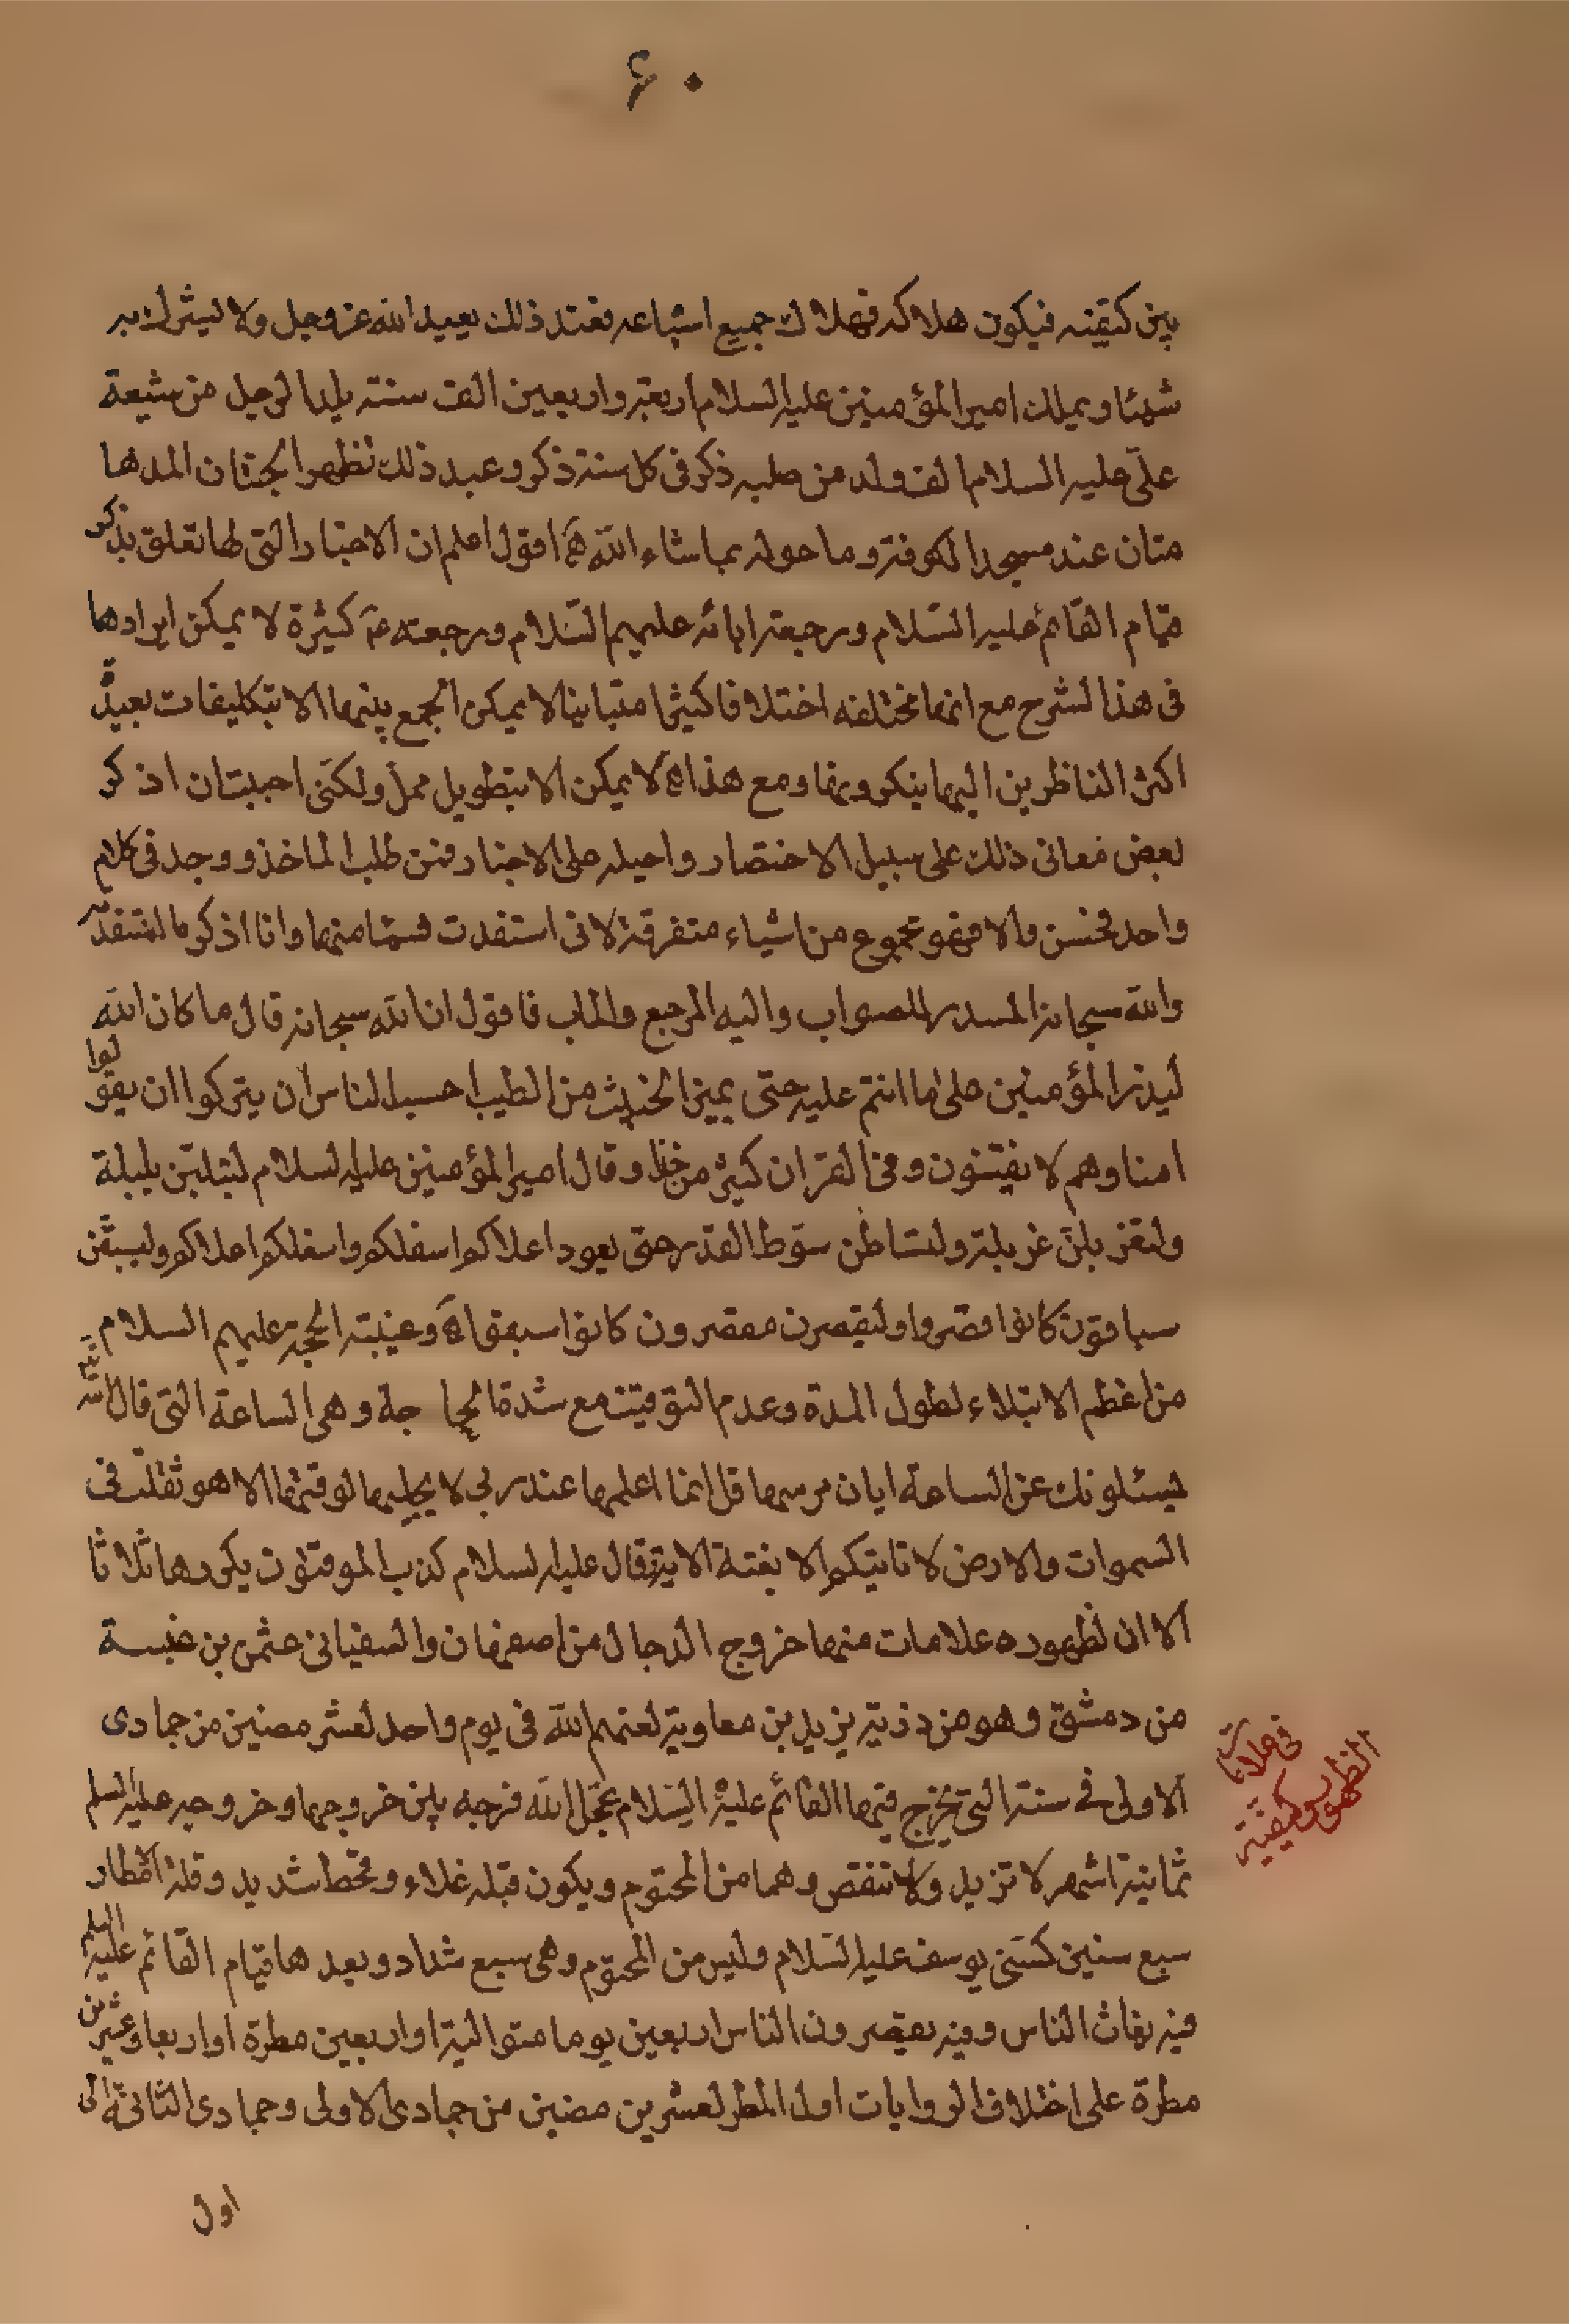 ۶۰
بين كتفيه فيكون هلاكه فهلاك جميع اشياعه فعند ذلك يعبد الله عز وجل ولا يشرك به
شيئا ويملك امير المؤمنين عليه السلام اربعة واربعين الف سنة يلد الرجل من شيعة
علىّ عليه السلام الف ولد من صلبه ذكر فى كل سنة ذكر وعند ذلك تظهر الجنتان المدها
متان عند مسجد الكوفة وما حوله بما شاء الله اقول اعلم ان الاخبار التى لها تعلق بذكر
قيام القائم عليه السّلام ورجعة ابائه عليهم السّلام ورجعته كثيرة لا يمكن ايرادها
فى هذا الشرح مع انها مختلفه اختلافا كثيرا متباينا لا يمكن الجمع بينها الا بتكليفات بعيدة
اكثر الناظرين اليها ينكرونها ومع هذا لا يمكن الا بتطويل ممل ولكنى احببت ان اذكر
بعض معانى ذلك على سبيل الاختصار واحيله على الاخبار فمن طلب الماخذ ووجد فى كلام
واحد فحسن والا فهو مجموع من اشياء متفرقة لانى استفدت منها وانا اذكر ما
والله سبحانه المسدد للصواب واليه المرجع والماب فاقول ان الله سبحانه قال ما كان الله
ليذر المؤمنين على ما انتم عليه حتى يميز الخبيث من الطيب احسب الناس ان يتركوا ان يقولوا
امنا وهم لا يفتنون وفى القران كثير من وقال امير المؤمنين عليه السلام لتبلبلن بلبلة
ولتغربلن غربلة ولتساطن سوط القدر حتى يعود اعلاكم اسفلكم واسفلكم اعلاكم وليسبقن
سباقون كانوا قصروا وليقصرن مقصرون كانوا سبقوا وغيبة الحجة عليهم السلام
من اعظم الابتلاء لطول المدة وعدم التوقيت مع شدة الحاجة وهى الساعة التى قال الله
يسئلونك عن الساعة ايان مرسها قل انما اعلمها عند ربى لا يجليها لوقتها الا هو ثقلت فى
السموات والارض لا تاتيكم الا بغتة الاية قال عليه السلام كذب الموقتون يكررها ثلاثا
الا ان لظهوره علامات منها خروج الدجال من اصفهان والسفيانى عثمن بن عنبسة
من دمشق وهو من ذرية يزيد بن معاوية لعنهم الله فى يوم واحد لعشر مضين من جمادى
الاولى فى سنة التى يخرج فيها القائم عليه السّلام عجّل الله فرجه بين خروجهما وخروجه عليه السلم
ثمانية اشهر لا تزيد ولا تنقص وهما من المحتوم ويكون قبله غلاء وقحط شديد وقلة امطار
سبع سنين كسنى يوسف عليه السّلام وليس من المحتوم وهى سبع شداد وبعدها قيام القائم عليه السلم
فيه يغاث الناس وفيه يعصرون الناس اربعين يوما متوالية اواربعين مطرة او اربعا وعشرين
مطرة على اختلاف الروايات اول المطر لعشرين مضين من جمادى الاولى وجمادى الثانية الى
فى علامات
الظهور وكيفيته
اول